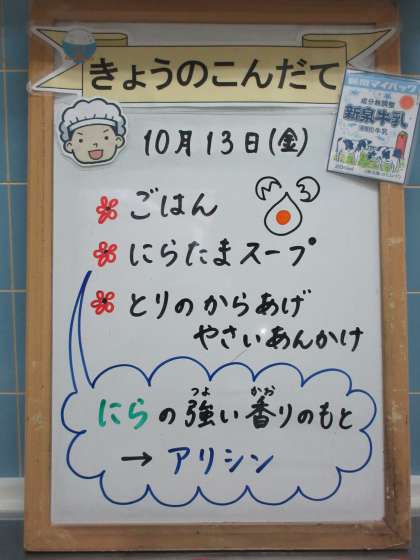 きょうのこんだて
10月13日(金)
成分無調整
新泉牛乳
ごはん
にらたまスープ
とりのからあげ
やさいあんかけ
にらの強い香りのもと
つよ かお
→ アリシン